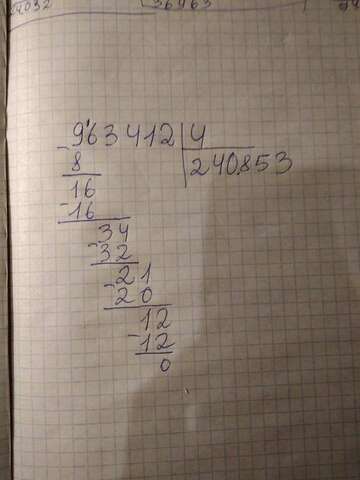 36963
963412 4
8 240853
16
-16
34
-32
21
-20
12
-12
0